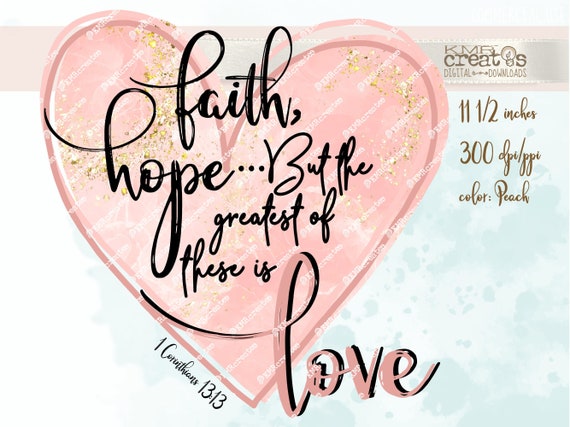 KMB
creat s
DIGITAL DOWNLOADS
faith,
hope...But the
greatest of
these is
love
1 Corinthians 13:13
11 1/2 inches
300 dpi/ppi
color: Peach